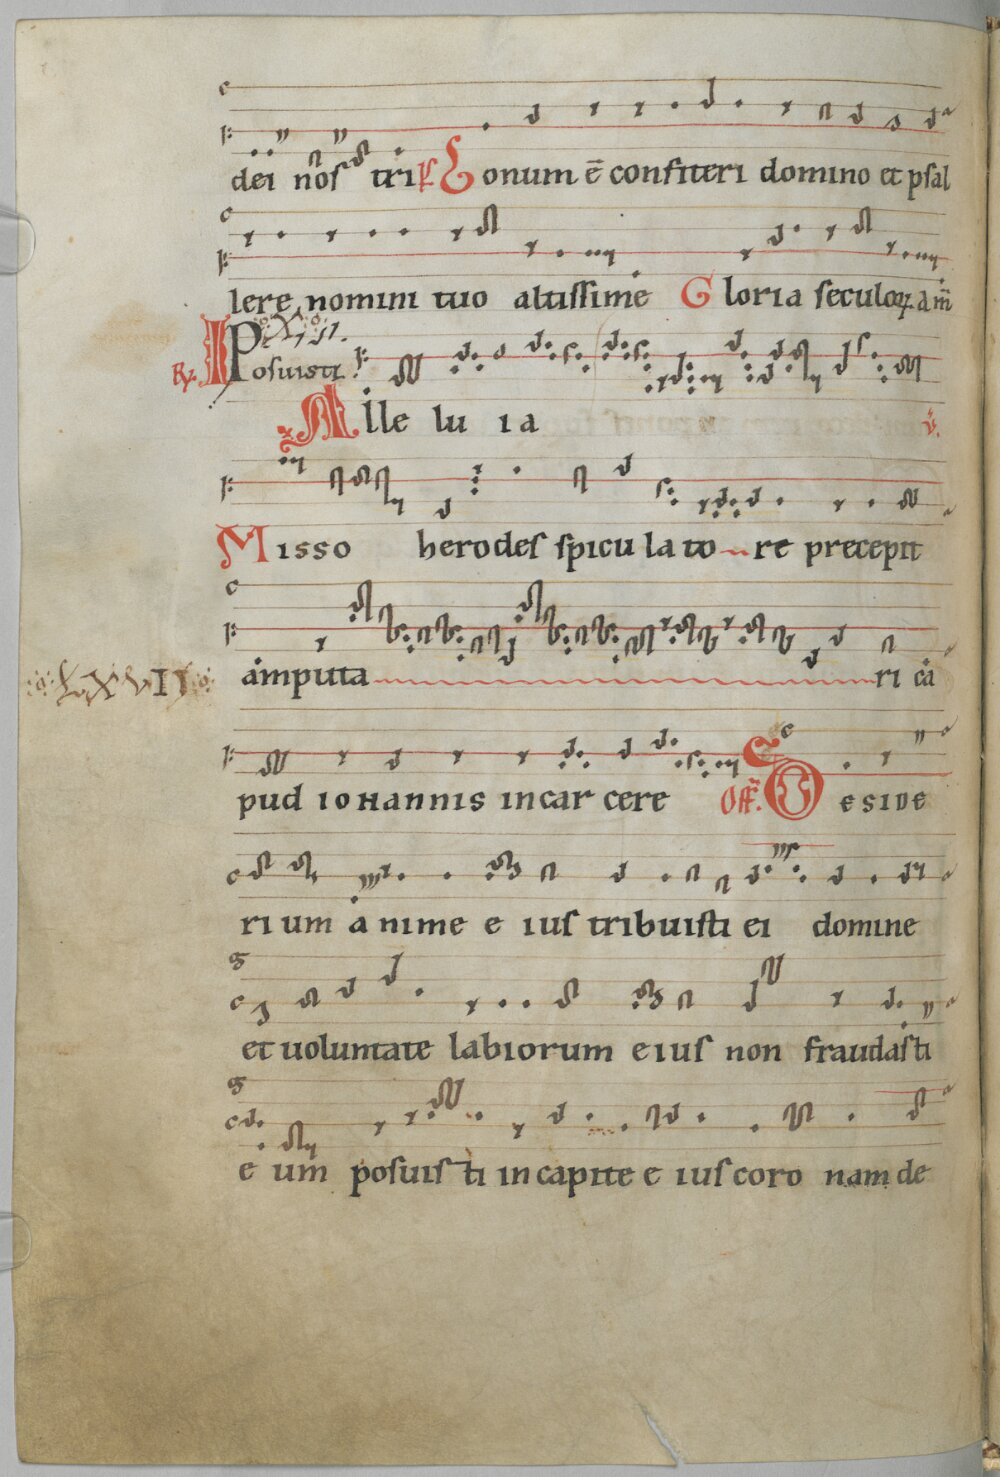 dei nos tri Ps Bonum ē confiteri domino et psal
lere nomini tuo altissime Gloria seculoꝝ am̄
XIII.
R̄. Posuisti
Alle lu ia v̄.
Misso herodes spicu la to re precepit
amputa ri ca
LXVII
pud iohannis incar cere Off. Deside
ri um a nime e ius tribuisti ei domine
et uoluntate labiorum eius non fraudasti
e um posuis ti in capite e ius coro nam de